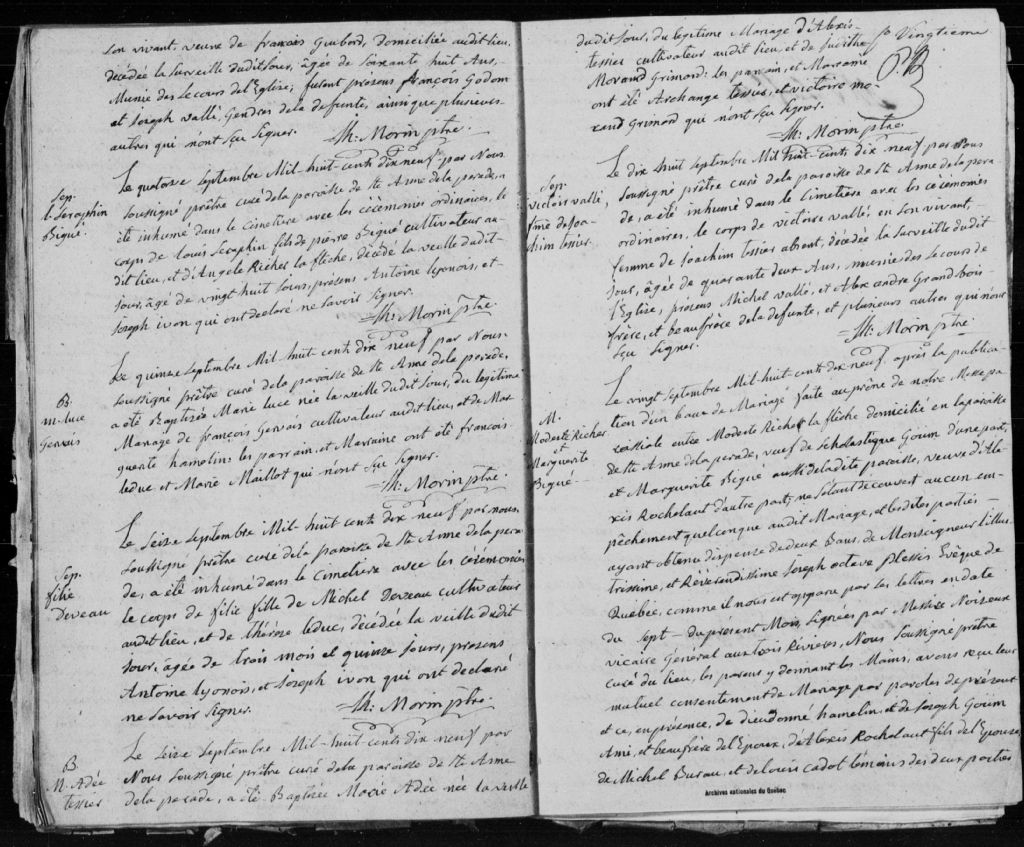 son vivant, veuve de françois Guibord, Domiciliée audit lieu,
décédée la surveille dudit Jour, âgée de soixante huit Ans,
Munie des secours de l'Eglise; furent présens françois Godon
et Joseph vallé, Gendres de la defunte, ainsi que plusieurs
autres qui n'ont sçu signer.
M: Morin ptre.
Sep:
l. Seraphin
Bigué.
Le quatorze septembre Mil-huit-cents dix neuf par Nous
soussigné prêtre curé de la paroisse de Ste Anne de la perade, a
été inhumé dans le cimetiere avec les cérémonies ordinaires, le
corps de Louis Seraphin fils de pierre Bigué cultivateur au-
dit lieu, et d'Angele Richer la flèche, décédé la veille dudit
Jour, âgé de vingt huit Jours, présens Antoine lyonois, et
Joseph ivon qui ont declaré ne savoir signer.
M: Morin ptre
B.
m. luce
Gervais
Le quinze septembre Mil-huit-cents dix neuf par Nous
soussigné prêtre curé de la paroisse de Ste Anne de la perade,
a été Baptisée Marie luce née la veille dudit Jour, du legitime
Mariage de françois Gervais cultivateur audit lieu, et de Mar-
guerite hamelin: les parrain, et Marraine ont été francois
leduc, et Marie Maillot qui n'ont sçu signer.
M: Morin ptre
Sep.
félie
Deveau
Le seize septembre Mil-huit cents dix neuf par nous
soussigné prêtre curé de la paroisse de Ste Anne de la pera-
de, a été inhumé dans le cimetiere avec les cérémonies
le corps de félie fille de Michel Deveau cultivateur
audit lieu, et de thérèse leduc, décédée la veille dudit
Jour, agée de trois mois et quinze jours, présens
Antoine lyonois, et Joseph ivon qui ont declaré
ne savoir signer.
M: Morin ptre
B
M. Adée
tessier
Le seize septembre Mil-huit-cents dix neuf par
Nous soussigné prêtre curé de la paroisse de Ste Anne
de la perade, a été Baptisée Marie Adée née la veille
dudit Jour, du legitime Mariage d'Alexis
tessier cultivateur audit lieu, et de Judithe
Morand Grimard: les parrain, et Marraine
ont été Archange tessier, et victoire mo-
rand Grimard qui n'ont sçu signer.
M: Morin ptre.
p. Vingtieme
Sep.
victoire vallé,
fme de Joa-
chim tessier.
Le dix huit septembre Mil huit-cents dix neuf par Nous
soussigné prêtre curé de la paroisse de Ste Anne de la pera-
de, a été inhumé dans le Cimetiere avec les cérémonies
ordinaires, le corps de victoire vallé, en son vivant
femme de Joachim tessier absent, décédée la surveille dudit
Jour, âgée de quarante deux Ans, munie des secours de
l'Eglise, présens Michel vallé, et Alexandre Grandbois
frère, et beaufrère de la defunte, et plusieurs autres qui n'ont
sçu signer.
M: Morin ptre
M.
Modeste Richer
et
Marguerite
Bigué
Le vingt septembre Mil-huit cents dix neuf après la publica-
tion d'un banc de Mariage faite au prône de notre Messe pa-
roissiale entre Modeste Richer la flèche domicilié en la paroisse
de Ste Anne de la perade, veuf de Scholastique Gouin d'une part,
et Marguerite Bigué aussi de ladite paroisse, veuve d'Ale-
xis Rocheleaut d'autre part; ne s'étant découvert aucun em-
pêchement quelconque audit Mariage, et lesdites parties
ayant obtenu dispense de deux Bans, de Monseigneur l'illus-
trissime, et Révérendissime Joseph octave Plessis Evèque de
Québec, comme il nous est apparu par les lettres en date
du sept du présent Mois, signées par Messire Noiseux
vicaire Général aux trois Rivières, Nous soussigné prêtre
curé du lieu, les parens y donnant les Mains, avons reçu leur
mutuel consentement de Mariage par paroles de présent
et ce, en présence, de dieudonné hamelin, et de Joseph Gouin
Ami, et beaufrère de l'Epoux, d'Alexis Rocheleaut fils de l'Epouse,
de Michel Bureau, et de louis cadot temoins des deux parties
Archives nationales du Québec